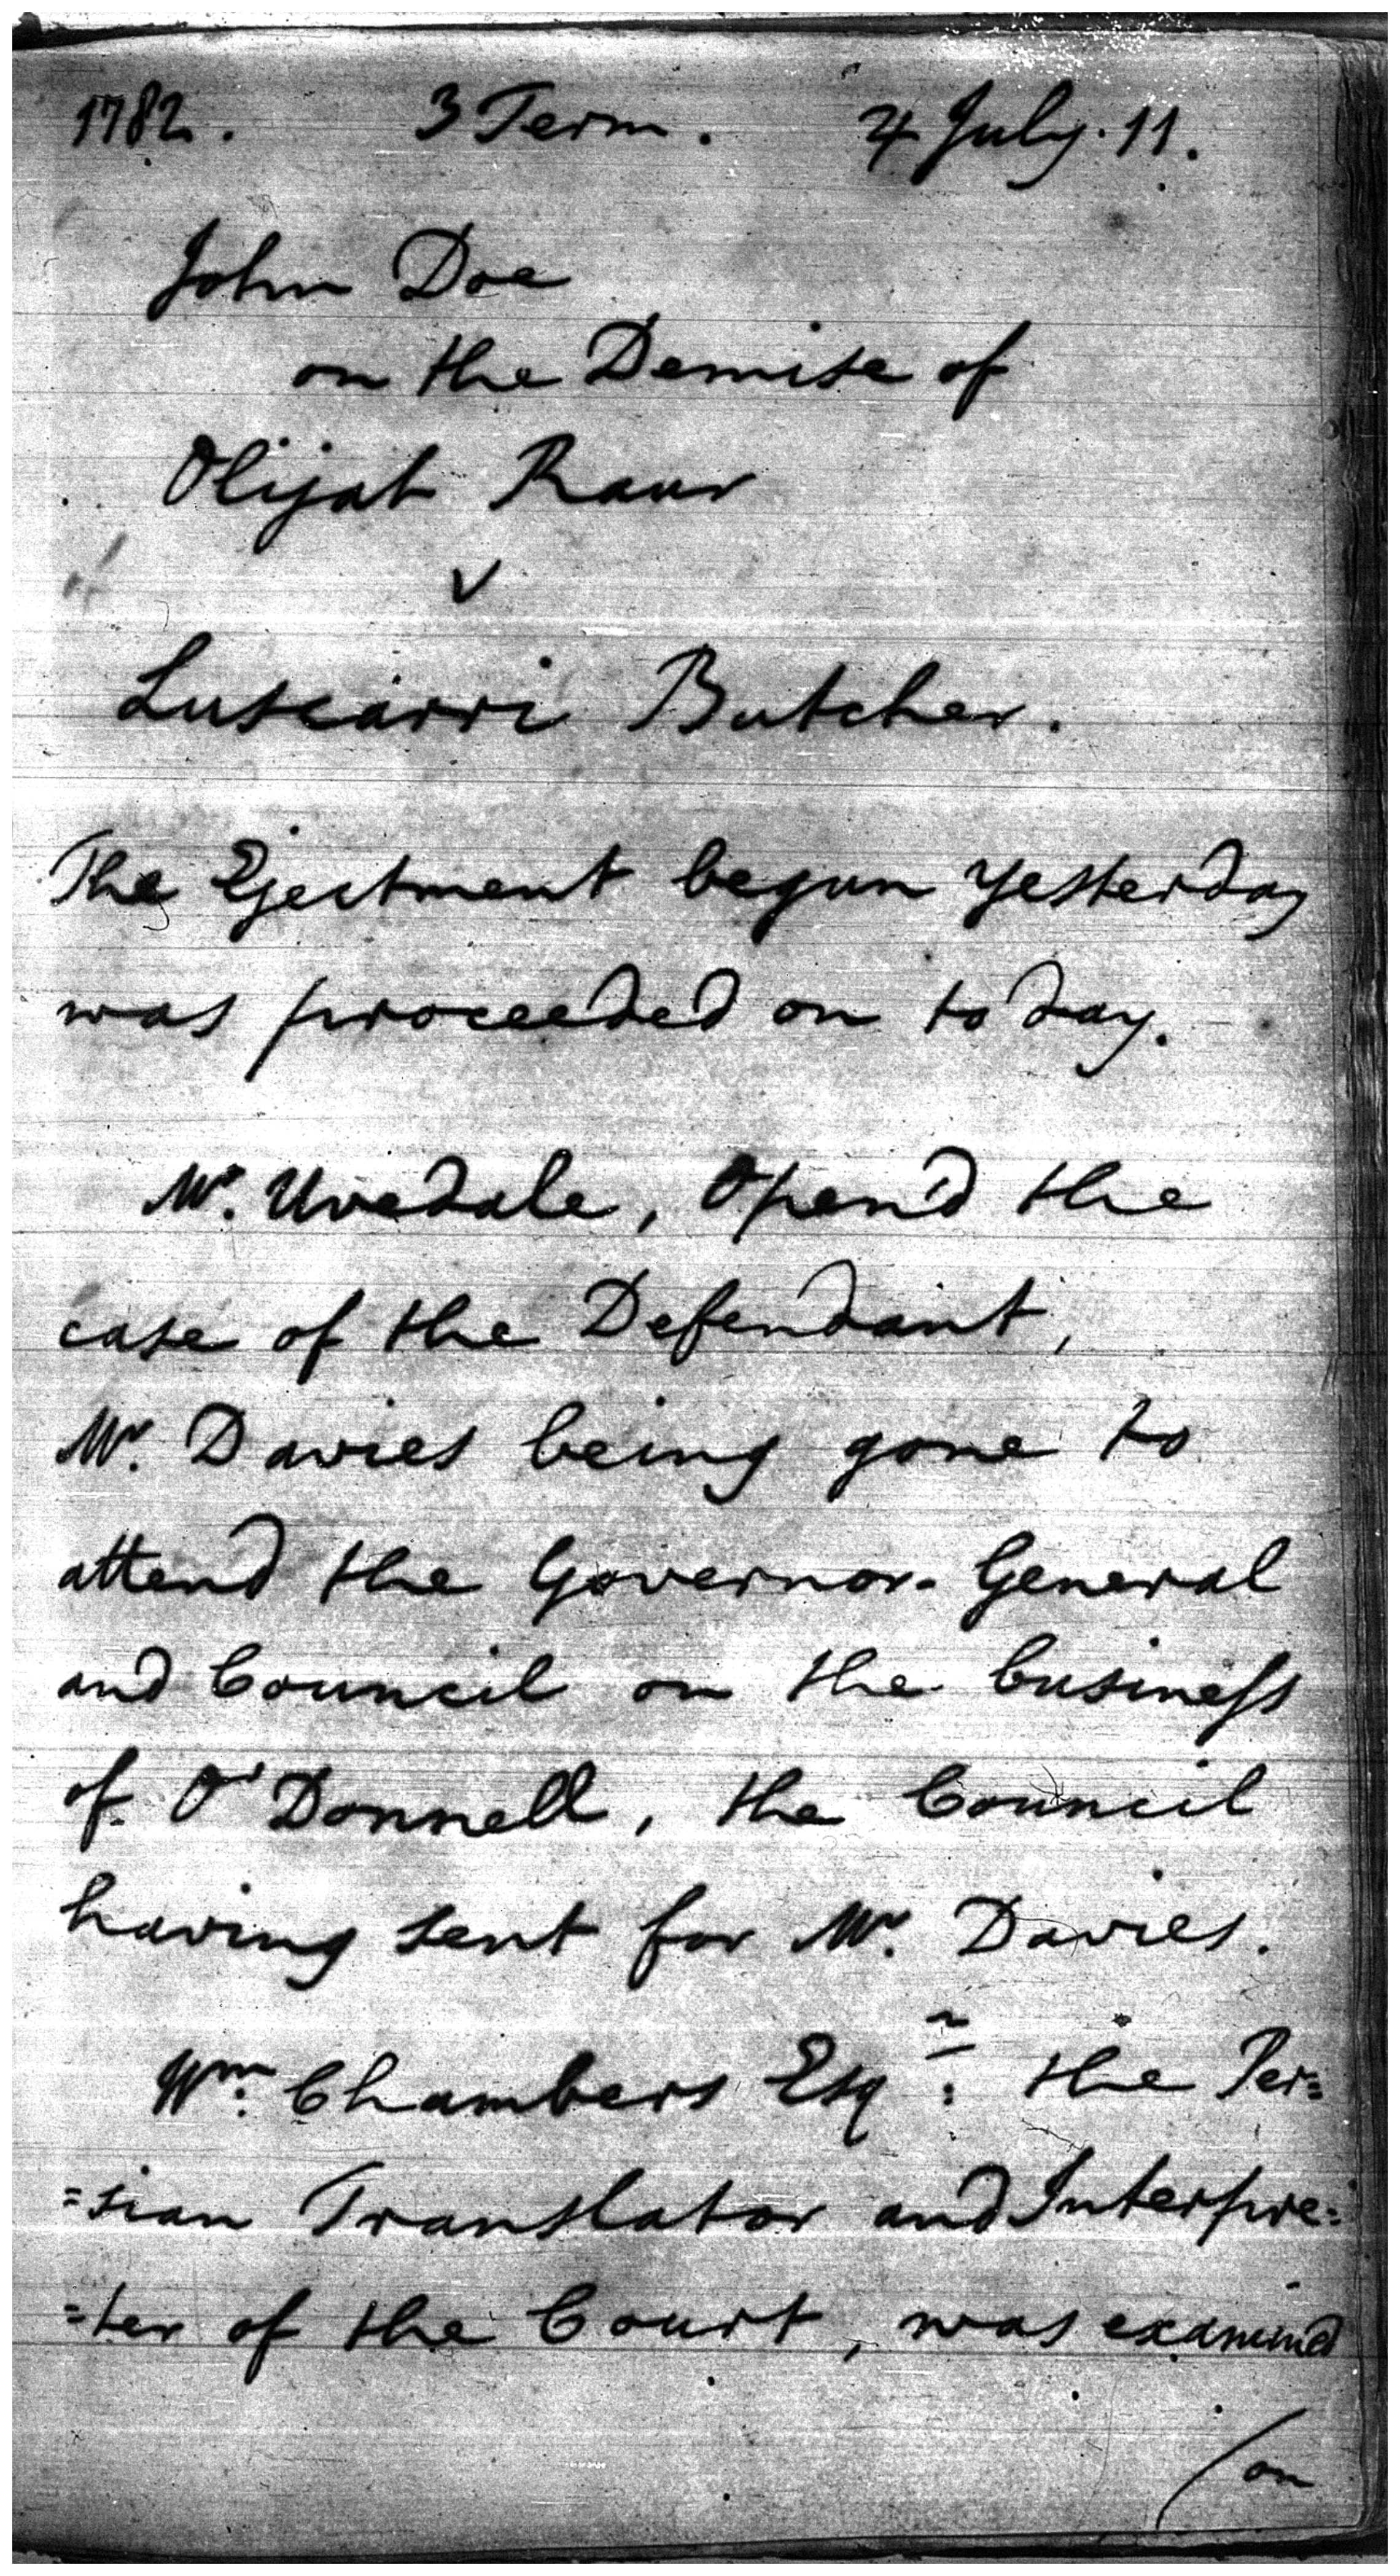 1782. 3 Term. 4 July. 11.
John Doe
on the Demise of
Olijah Raur
v
Luscarri Butcher.
The Ejectment begun yesterday
was proceeded on to day.
Mr. Uvedale, Open'd the
case of the Defendant,
Mr. Davies being gone to
attend the Governor-General
and Council on the business
of O'Donnell, the Council
having sent for Mr. Davies.
Wm. Chambers Esqr: the Per=
=sian Translator and Interpre=
=ter of the Court, was examined
(on